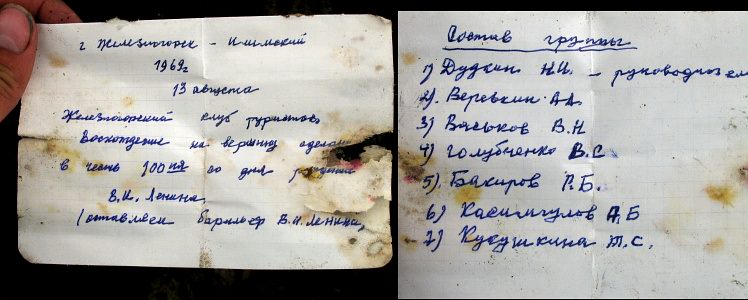 г Железногорск - Илимский
1969г
13 августа
Железногорский клуб туристов
Восхождение на вершину сделано
в честь 100 ия со дня рождения
В.И. Ленина
(оставляем барельеф В.И. Ленина)
Состав группы
1) Дудкин Н.И. - руководитель
2) Веревкин А.А.
3) Васьков В.Н
4) Голубченко В.С
5) Бакиров Р.Б.
6) Хасимгулов А,Б
7) Кукушкина Т.С.